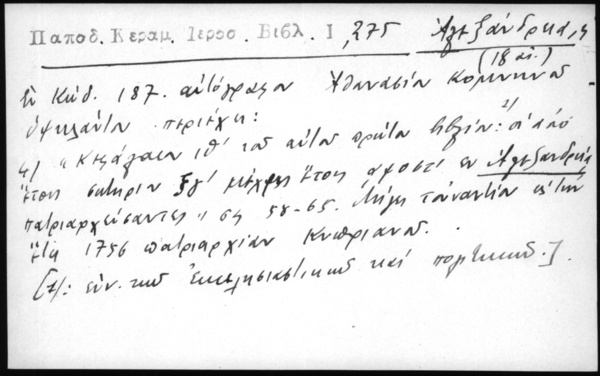 Παποδ. Κεραμ. Ιεροσ. Βιβλ. Ι, 275 Ἀλεξάνδρεια, 4
(18 αἰ.)
Ἐν Κώδ. 187. αὐτόγραφον Ἀθανασίου Κομνηνοῦ
Ὑψηλάντου περιέχει:
4) "Κεφάλαιον ιθ' τοῦ αὐτοῦ πρώτου βιβλίου: 1) οἱ ἀπὸ
ἔτους σωτηρίου ξγ' μέχρις ἔτους αψοστ' ἐν Ἀλεξανδρείᾳ
πατριαρχεύσαντες" σς 58-65. Λήγει τοὐναντίον εἰς τὴν
ἔτει 1756 πατριαρχίαν Κυπριανοῦ.
[1): ἐν. τῶν Ἐκκλησιαστικῶν καὶ πολιτικῶν.].